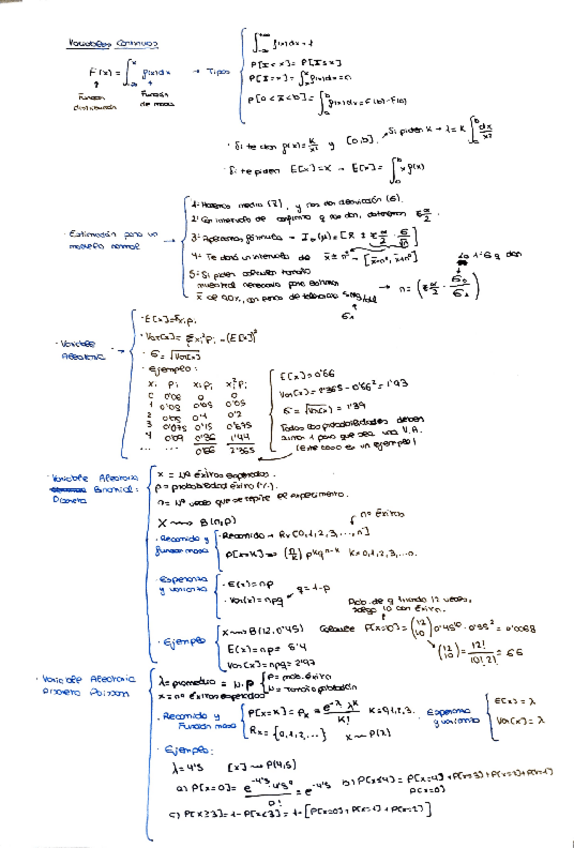 Variables Continuas
F(x) = ∫_{-∞}^{x} f(x)dx → Tipos
Función distribución
Función de masa
∫_{-∞}^{+∞} f(x)dx = 1
P[X<x] = P[X≤x]
P[X=x] = ∫ f(x)dx = 0
P[a<X<b] = ∫_a^b f(x)dx = F(b)-F(a)
· Si te dan f(x) = k/x² y [a,b]. Si piden K → 1 = K ∫_a^b dx/x²
· Si te piden E[X] = X → E[X] = ∫_a^b x f(x)
· Estimación para un modelo normal
1- Hacemos media (x̄), y nos dan desviación (σ).
2- Con intervalo de confianza q nos dan, z α/2.
3- Aplicamos fórmula → I (μ) = [x̄ ± z α/2 · σ/√n]
4- Te dará un intervalo de x̄ ± nº → [x̄-nº, x̄+nº]
5- Si piden calcular tamaño
muestral necesario para estimar
→ n = (z α/2 · )
· Variable Aleatoria
· E[x] = Σxᵢpᵢ
· Var[x] = Σxᵢ²pᵢ - (E[x])²
· σ = √Var[x]
· Ejemplo:
xᵢ pᵢ xᵢpᵢ xᵢ²pᵢ
0 0'06 0 0
1 0'05 0'05 0'05
2 0'05 0'1 0'2
3 0'075 0'15 0'675
4 0'09 0'36 1'44
... ... 0'66 2'365
E[x] = 0'66
Var[x] = 2'365 - 0'66² = 1'93
σ = √Var[x] = 1'39
Todas las probabilidades deben
sumar 1 para que sea una V.A.
(este caso es un ejemplo)
· Variable Aleatoria
Binomial:
Discreta
x = nº éxitos esperados.
p = probabilidad éxito (%).
n = nº veces que se repite el experimento.
X ⟿ B(n,p)
n = éxitos
· Recorrido y función masa
· Recorrido → Rx [0,1,2,3,...,n]
P[x=K] = (n K) p^K q^{n-K} K=0,1,2,3,...n.
· Esperanza y varianza
· E(x) = np
· Var(x) = npq
q = 1-p
Prob. de q tirando 12 veces,
salga 10 con éxito.
· Ejemplo
X ⟿ B(12, 0'45) Calcule P[X=10] = (12 10) 0'45¹⁰ · 0'55² = 0'0068
E(x) = np = 5'4
Var(x) = npq = 2'97
(12 10) = 12!/10!2! = 66
· Variable Aleatoria
Discreta Poisson
λ = promedio = N.p
p = prob. éxito
N = Tamaño población
x = nº éxitos esperados
· Recorrido y Función masa
P[x=K] = P_K = e^{-λ} λ^K / K! K=0,1,2,3.
Rx = {0,1,2,...} X ⟿ P(λ)
Esperanza y varianza
E[x] = λ
Var[x] = λ
· Ejemplo:
λ = 4'5 [x] ⟿ P(4,5)
a) P[x=0] = e^{-4'5} · 4'5⁰ / 0! = e^{-4'5}
b) P[x≤4] = P[x=4] + P[x=3] + P[x=2] + P[x=1]
P[x=0]
c) P[x≥3] = 1 - P[x<3] = 1 - [P[x=0] + P[x=1] + P[x=2]]